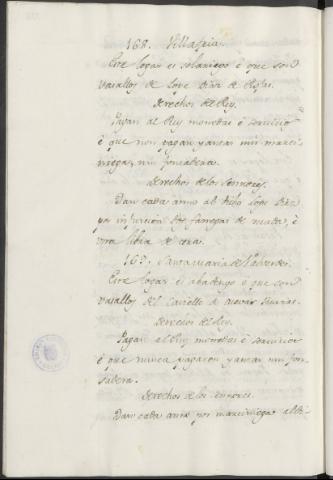 168. Villafria.
Este logar es solariego è que son
vasallos de Lope Diaz de Rojas.
Derechos del Rey.
Pagan al Rey monedas è servicios
è que non pagan yantar nin marti
niega, nin fonsadera.
Derechos de los Señores.
Dan cada anno al dicho Lope Diaz
por infurcion fanegas de
una libra de cera.
169. Santa Maria de
Este logar es abadengo è que son
vasallos del
Derechos del Rey.
Pagan al Rey monedas è servicios
è que nunca pagaron yantar nin fon
sadera.
Derechos de los Señores.
Dan cada anno por martiniega al di-